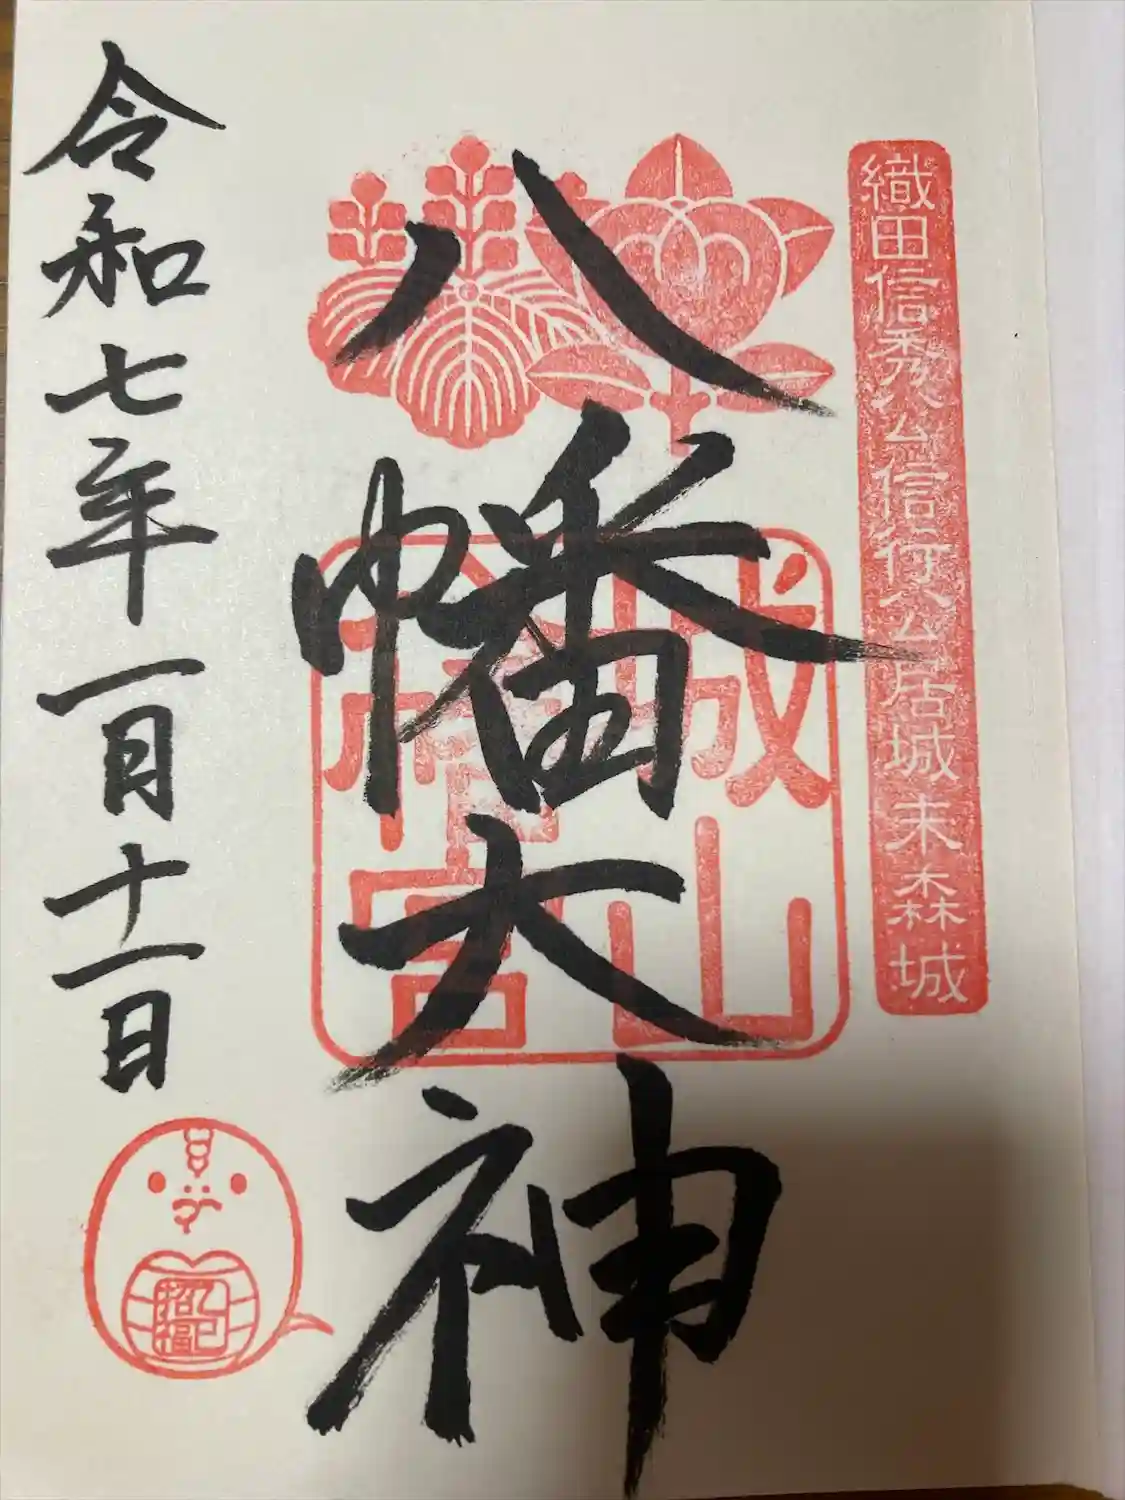 織田信秀公信行公居城末森城
八幡大神
城山
八幡宮
令和七年一月十一日
乙巳
招福